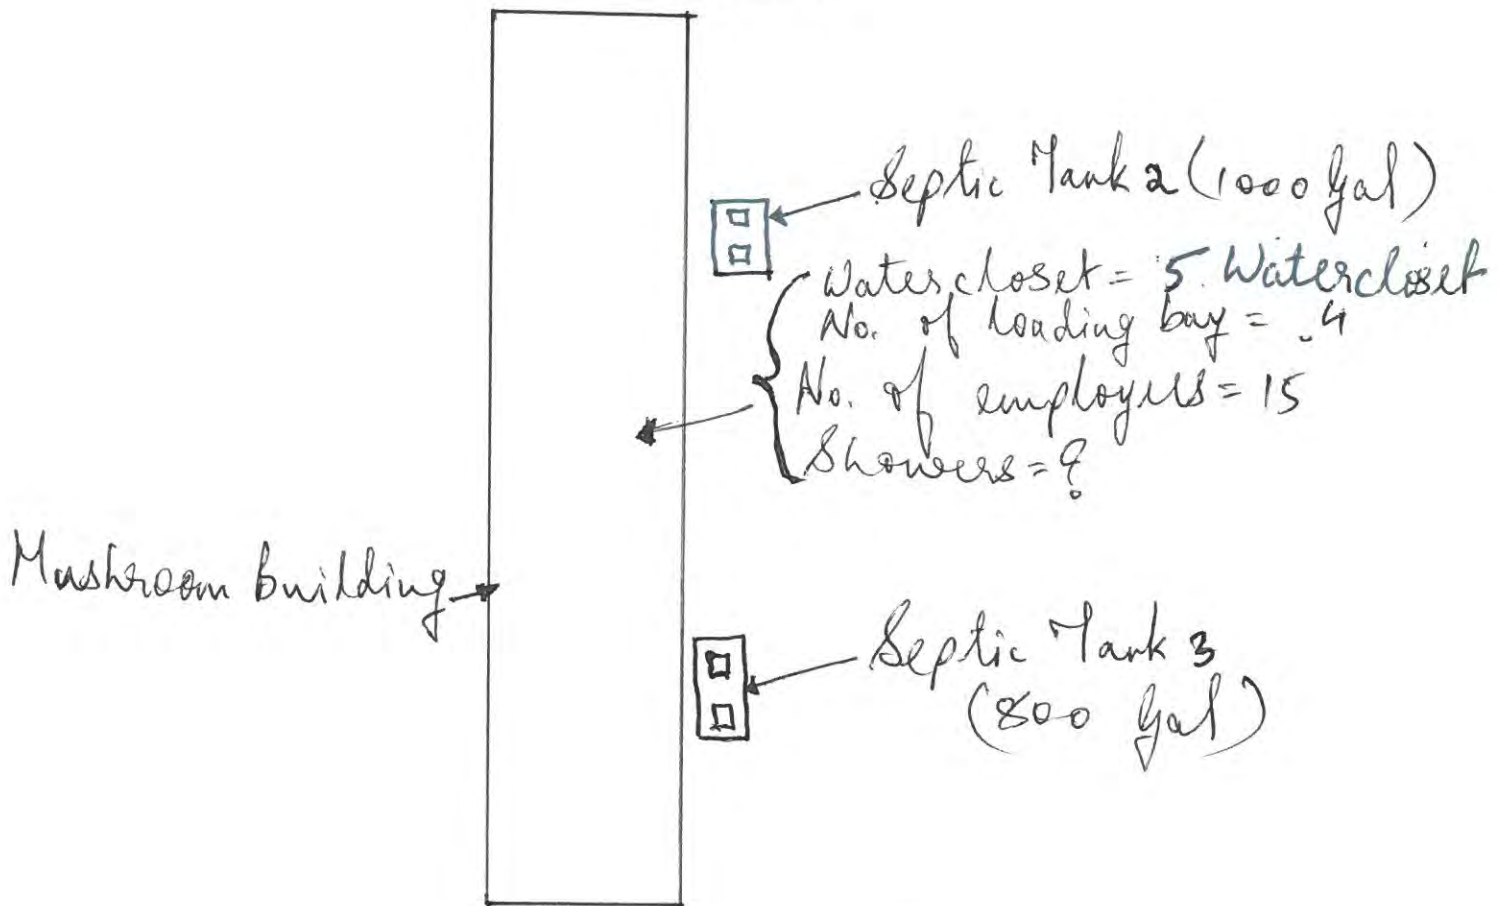 Septic Tank 2 (1000 Gal)
Watercloset = 5 Watercloset
No. of loading bay = 4
No. of employees = 15
Showers = ?
Mushroom building
Septic Tank 3
(800 Gal)